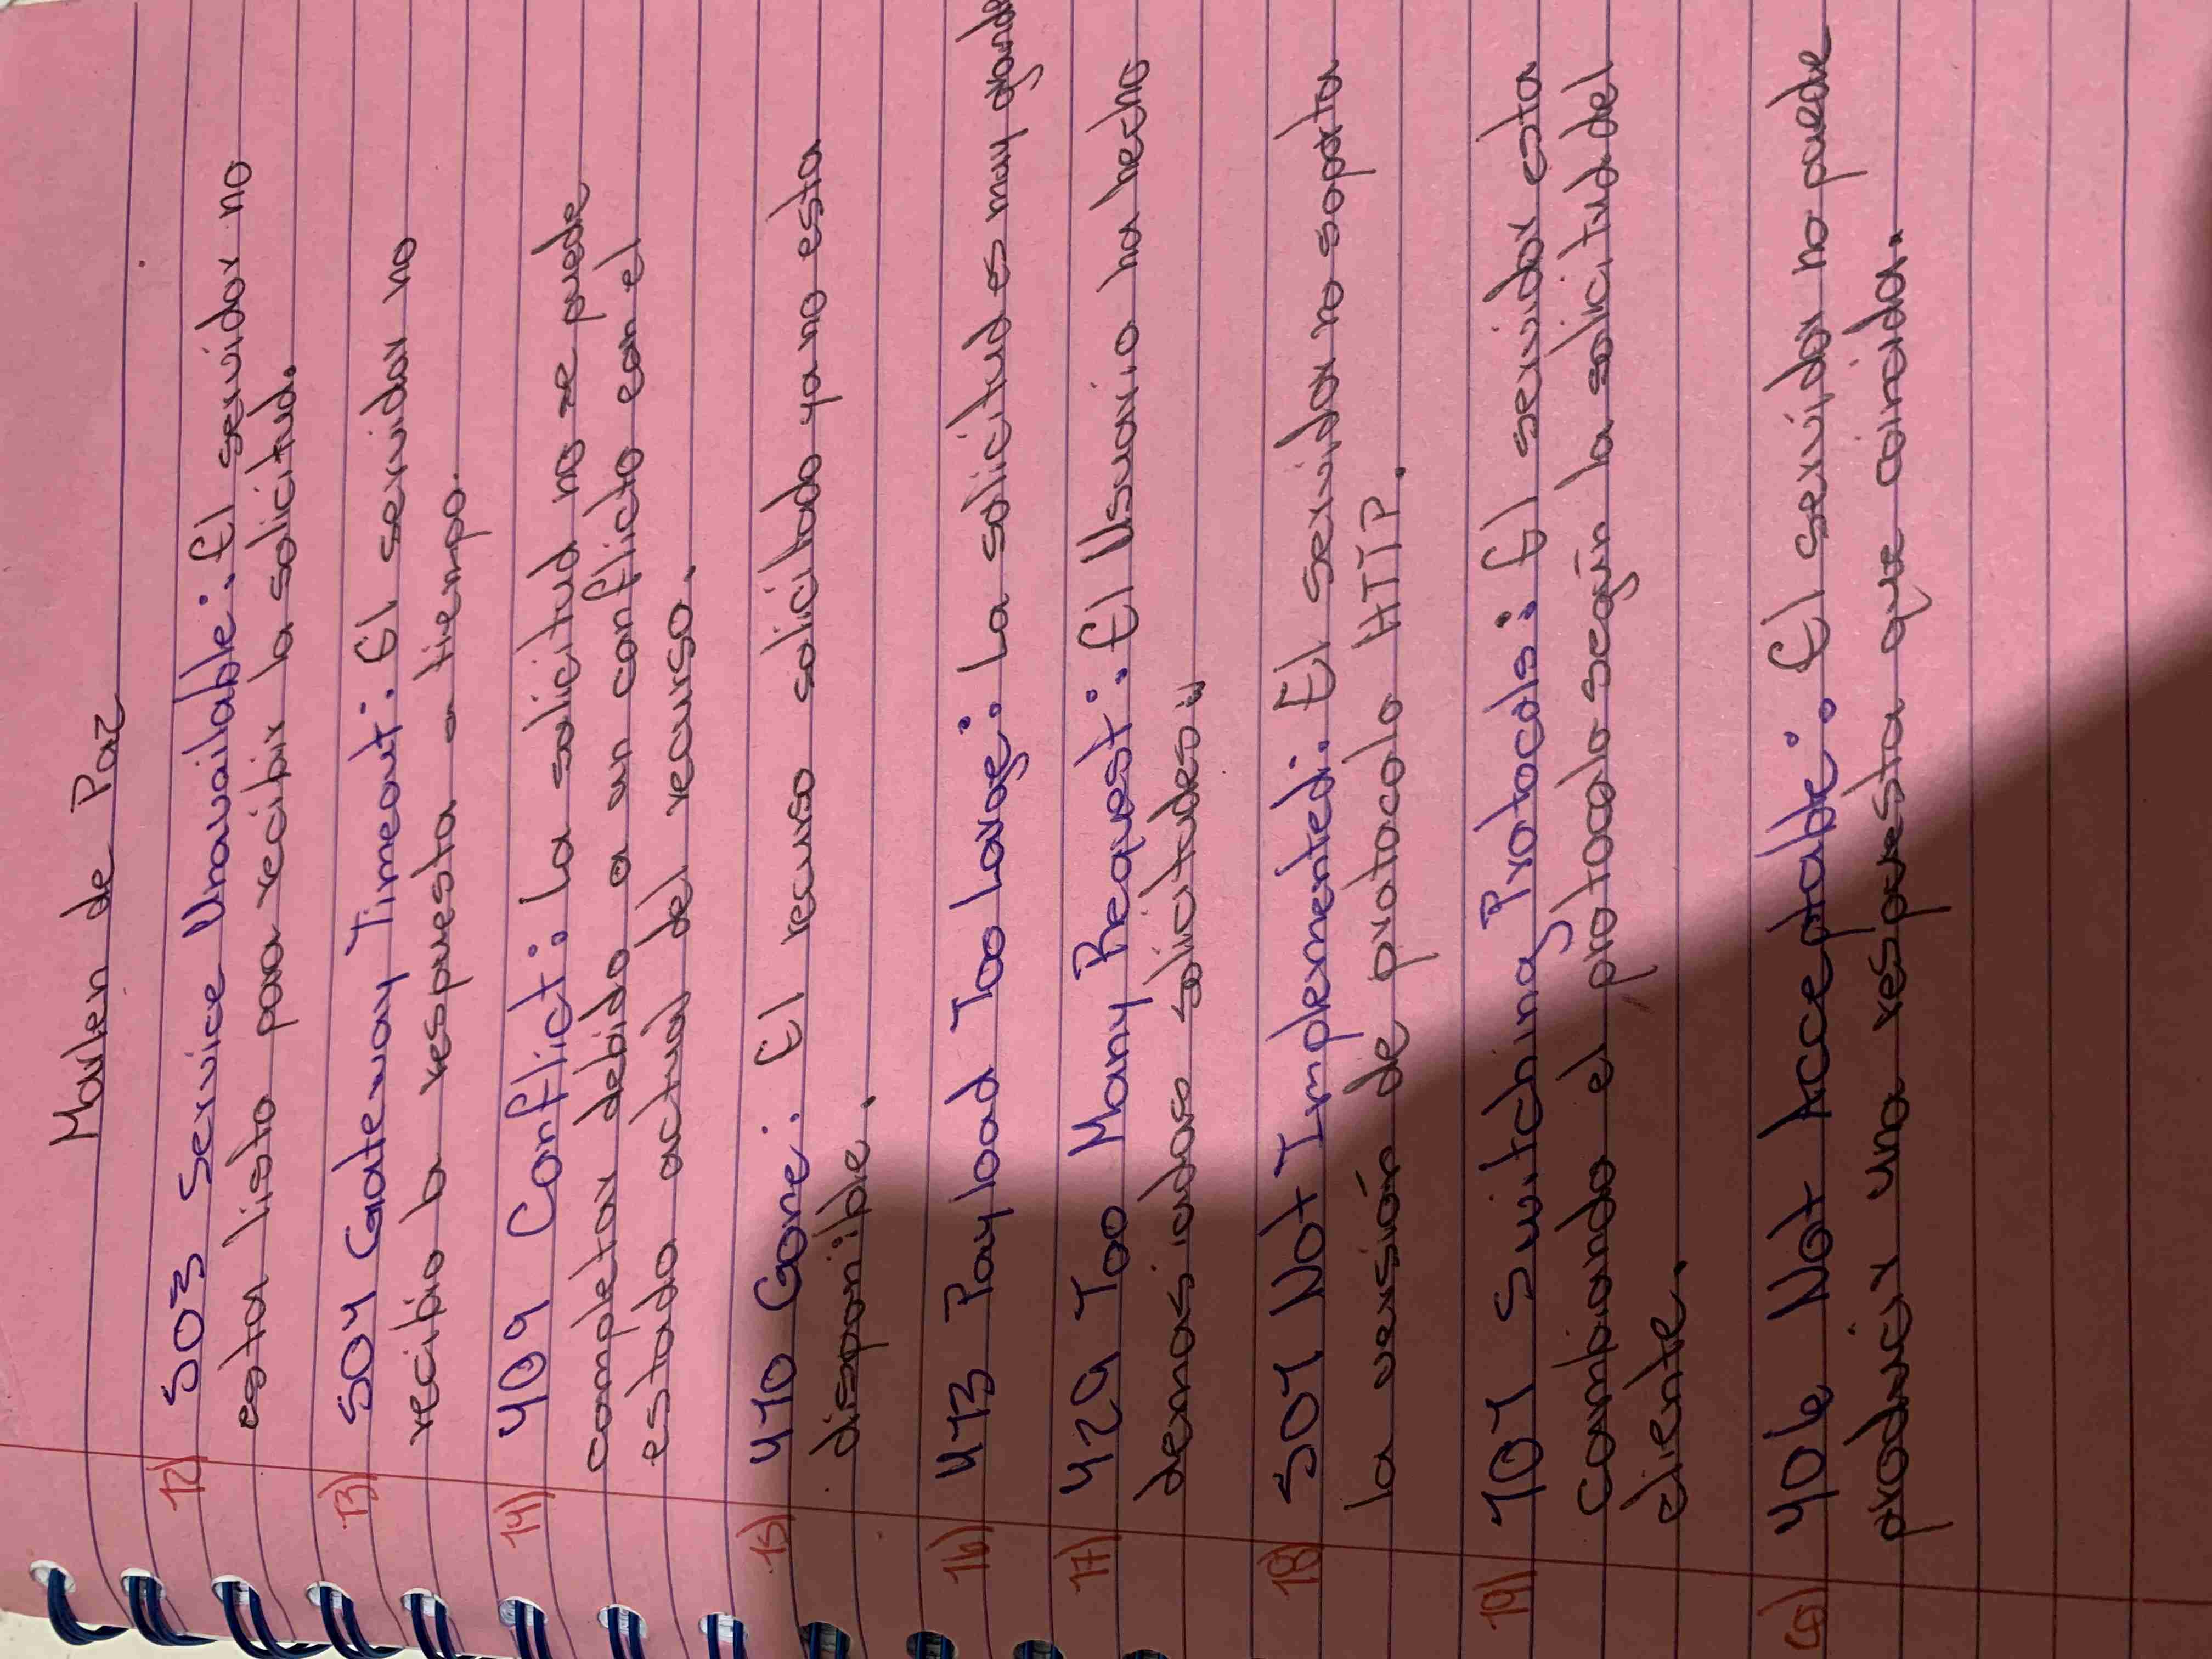 Marlen de Paz
12) 503 Service Unavailable: El servidor no
esta listo para recibir la solicitud.
13) 504 Gateway Timeout: El servidor no
recibio la respuesta a tiempo.
14) 409 Conflict: La solicitud no se puede
completar debido a un conflicto con el
estado actual del recurso.
15) 410 Gone: El recurso solicitado ya no esta
disponible.
16) 413 Payload Too Large: La solicitud es muy grande
17) 429 Too Many Request: El Usuario ha hecho
demasiadas solicitudes.
18) 501 Not Implemented: El servidor no soporta
la versión de protocolo HTTP.
19) 101 Switching Protocols: El servidor esta
cambiando el protocolo según la solicitud del
cliente.
406 Not Acceptable: El servidor no puede
producir una respuesta que coincida.